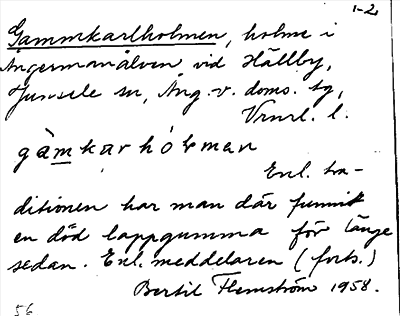 1-2
Gammkarlholmen, holme i
Ångermanälven vid Hällby,
Junsele sn, Ång. v. doms. sg,
Vrnrl. l.
gàmkarhólman
Enl. tra-
ditionen har man där funnit
en död lappgumma för länge
sedan. Enl. meddelaren (forts.)
Bertil Flemström 1958.
56